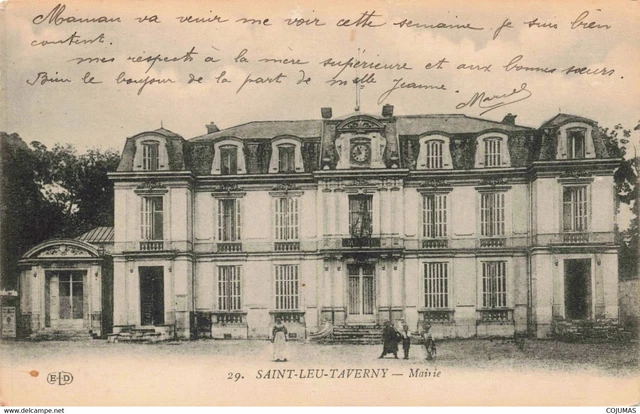 Maman va venir me voir cette semaine je suis bien
content.
mes respects à la mère supérieure et aux bonnes sœurs.
Bien le bonjour de la part de melle Jeanne.
Marcel
29. SAINT-LEU-TAVERNY — Mairie
ELD
COJUMAS